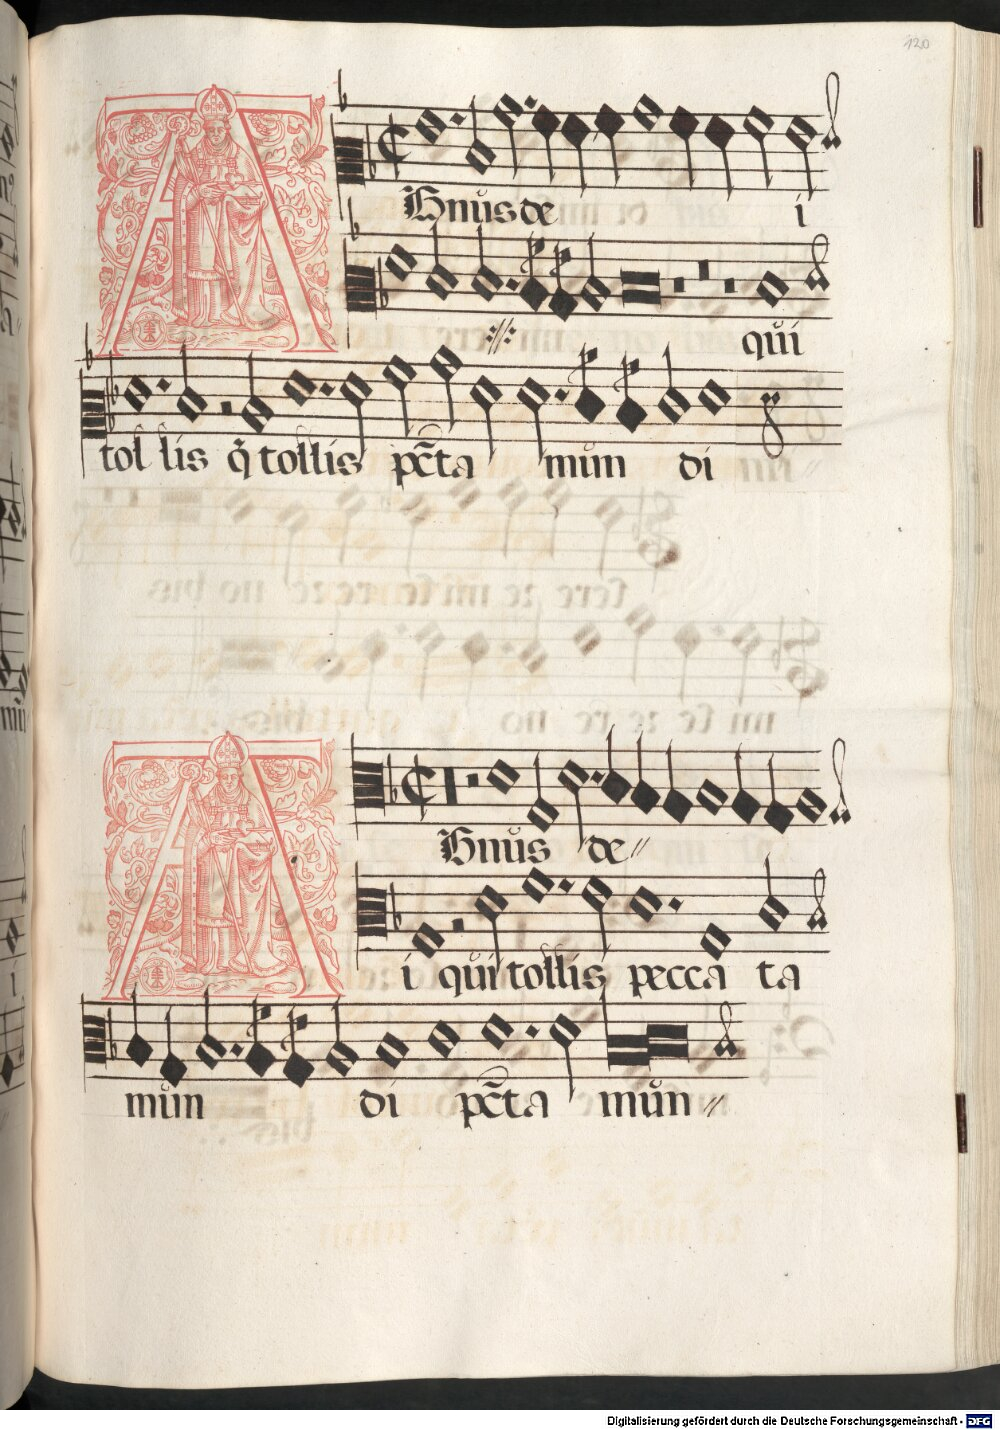 120
Agnus de i
qui
tollis q̃ tollis pc̃ta mun di
Agnus de
i qui tollis pecca ta
mum di pc̃ta mun
Digitalisierung gefördert durch die Deutsche Forschungsgemeinschaft - DFG